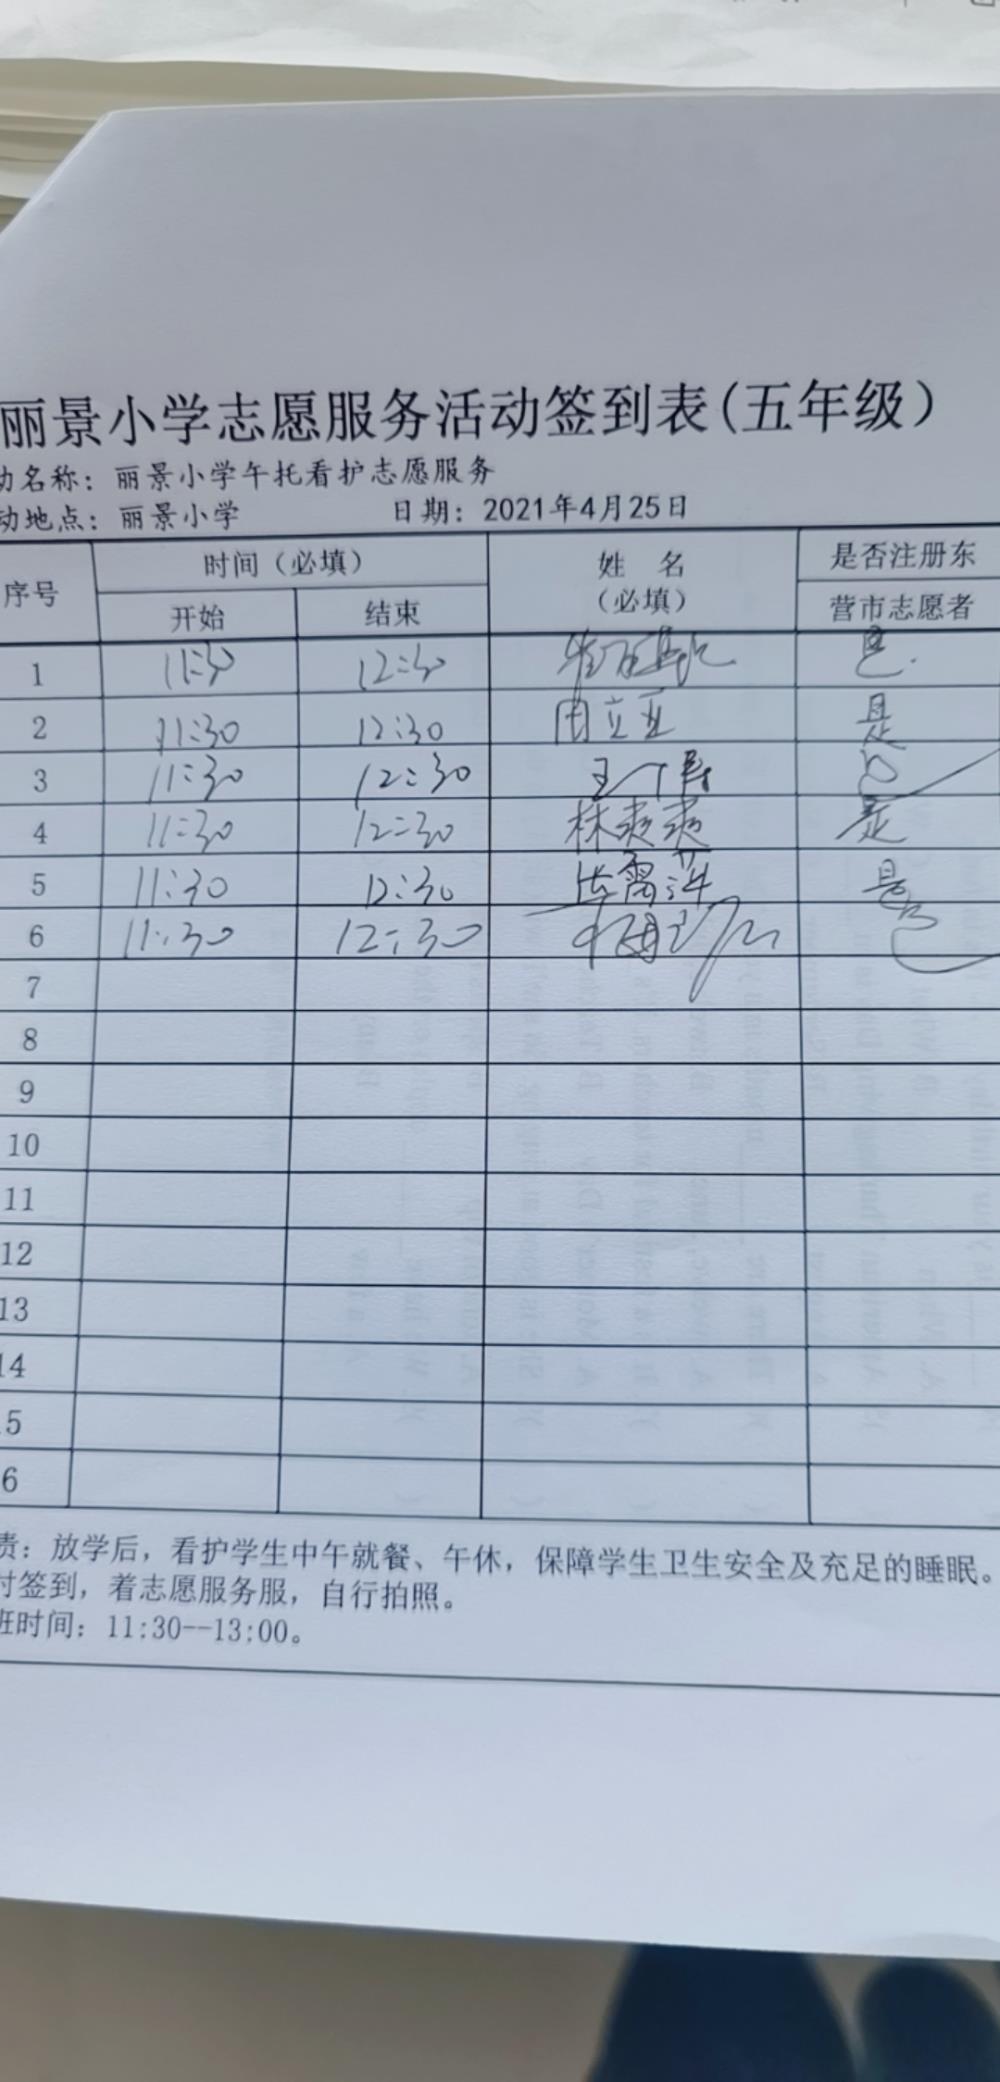 丽景小学志愿服务活动签到表(五年级）
动名称：丽景小学午托看护志愿服务
动地点：丽景小学 日期：2021年4月25日
序号 时间（必填） 姓 名 （必填） 是否注册东
开始 结束 营市志愿者
1 11:30 12:30 是
2 11:30 12:30 周立亚 是
3 11:30 12:30
4 11:30 12:30 林爽爽 是
5 11:30 12:30 是
6 11:30 12:30
7
8
9
10
11
12
13
14
5
6
责：放学后，看护学生中午就餐、午休，保障学生卫生安全及充足的睡眠。
时签到，着志愿服务服，自行拍照。
班时间：11:30--13:00。